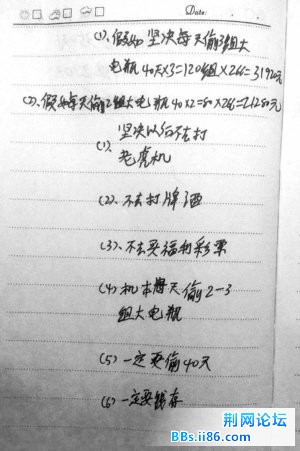 Date:
(1)、假如坚决每天偷3组大
电瓶40天×3=120组×266=31920元
(2)、假如每天偷2组大电瓶40×2=80×266=21280元
坚决以后不去打
(1)、老虎机
(2)、不去打牌酒
(3)、不去买福利彩票
(4)机本每天偷2-3
组大电瓶
(5)一定要偷40天
(6)一定要钱存
荆网论坛
BBs.ii86.com